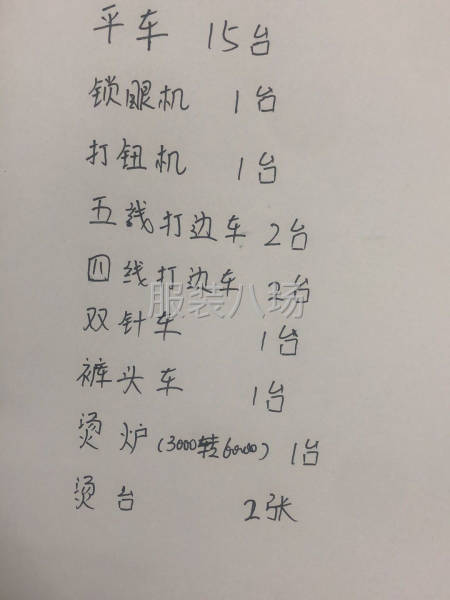 平车 15台
锁眼机 1台
打钮机 1台
五线打边车 2台
四线打边车 2台
服装八场
双针车 1台
裤头车 1台
烫炉(3000转6000) 1台
烫台 2张